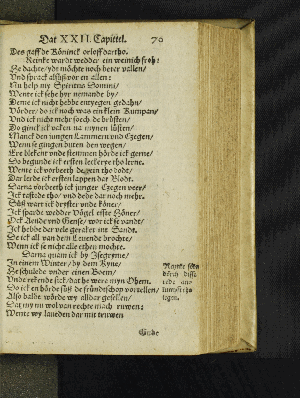 Dat XXII. Capittel. 70
Des gaff de Köninck orloff dartho.
Reinke wardt wedder ein weinich froh:
He dachte / ydt möchte noch beter vallen /
Vnd sprack alsüß vor en allen:
Nu help my Spiritus Domini /
Wente ick sehe hyr nemande by /
Deme ick nicht hebbe entyegen gedahn /
Vörder / do ick noch was ein kleen Kumpan /
Vnd ick nicht mehr soech de brösten /
Do ginck ick vaken na mynen lüsten /
Manck den jungen Lammern vnd Czegen /
Wenn se gingen buten den wegen /
Ere blekent vnde stemmen hörde ick gerne /
So begunde ick ersten leckerye tho lerne.
Wente ick vorbeeth der ein tho dodt /
Dar lerde ick ersten lappen dat Blodt.
Darna vorbeeth ick junger Czegen veer /
Ick rastede tho / vnd dede dat noch mehr.
Süß wart ick dryster vnde köner /
Ick sparde wedder Vögel effte Höner /
Ock Aende vnd Gense / wor ick se vandt /
Ick hebbe der vele geraket int Sandt.
De ick all van dem Leuende brochte /
Wenn ick se nicht alle ethen mochte.
Darna quam ick by Isegryme /
In einem Winter / by dem Ryne /
He schulede vnder einen Boem /
Vnde rekende sick / dat he were myn Ohem.
Do ick en hörde süß de fründtschop vortellen /
Also balde wörde wy alldar gesellen /
Dat my nu wol van rechte mach ruwen:
Wente wy laueden dar mit truwen
Reynke
tögen.
Einde